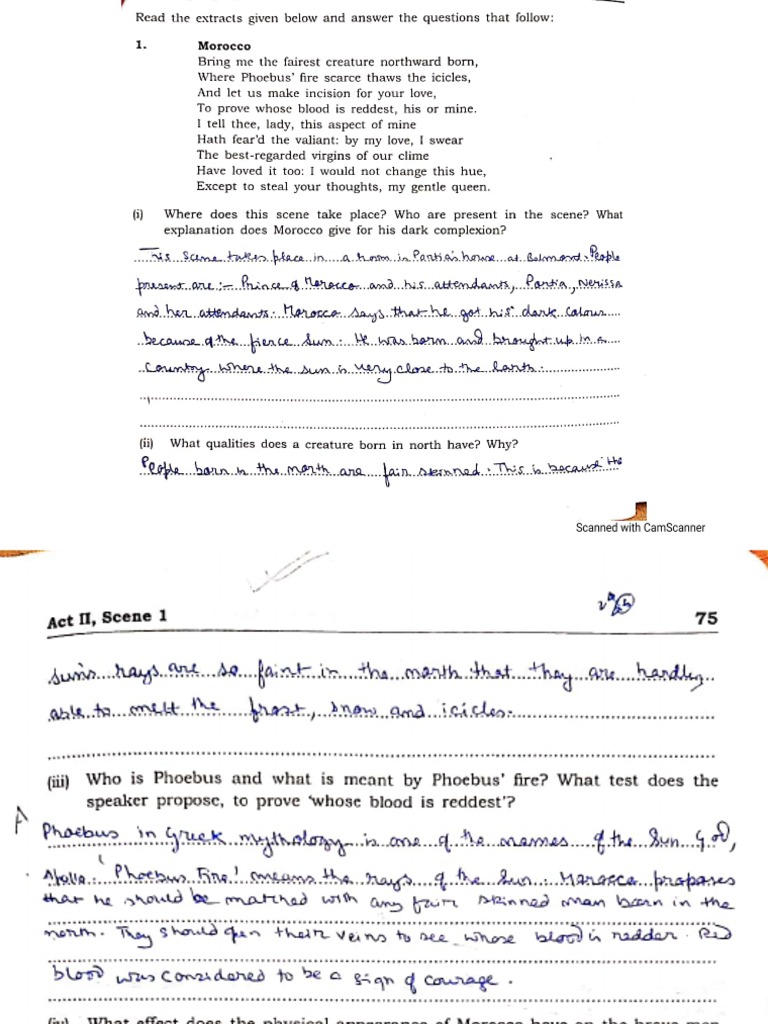 Read the extracts given below and answer the questions that follow:
1. Morocco
Bring me the fairest creature northward born,
Where Phoebus' fire scarce thaws the icicles,
And let us make incision for your love,
To prove whose blood is reddest, his or mine.
I tell thee, lady, this aspect of mine
Hath fear'd the valiant: by my love, I swear
The best-regarded virgins of our clime
Have loved it too: I would not change this hue,
Except to steal your thoughts, my gentle queen.
(i) Where does this scene take place? Who are present in the scene? What
explanation does Morocco give for his dark complexion?
This scene takes place in a room in Portia's house at Belmont. People
present are :- Prince of Morocco and his attendants, Portia, Nerissa
and her attendants. Morocco says that he got his dark colour
because of the fierce Sun. He was born and brought up in a
country where the sun is very close to the Earth.
(ii) What qualities does a creature born in north have? Why?
People born in the north are fair skinned. This is because the
Scanned with CamScanner
Act II, Scene 1
75
sun's rays are so faint in the north that they are hardly
able to melt the frost, snow and icicles.
(iii) Who is Phoebus and what is meant by Phoebus' fire? What test does the
speaker propose, to prove 'whose blood is reddest'?
A
Phoebus in Greek mythology is one of the names of the Sun God,
Apollo. 'Phoebus Fire' means the rays of the Sun. Morocco proposes
that he should be matched with any fair skinned man born in the
north. They should open their veins to see whose blood is redder. Red
blood was considered to be a sign of courage.
(iv) What effect does the physical appearance of Morocco have on the brave men